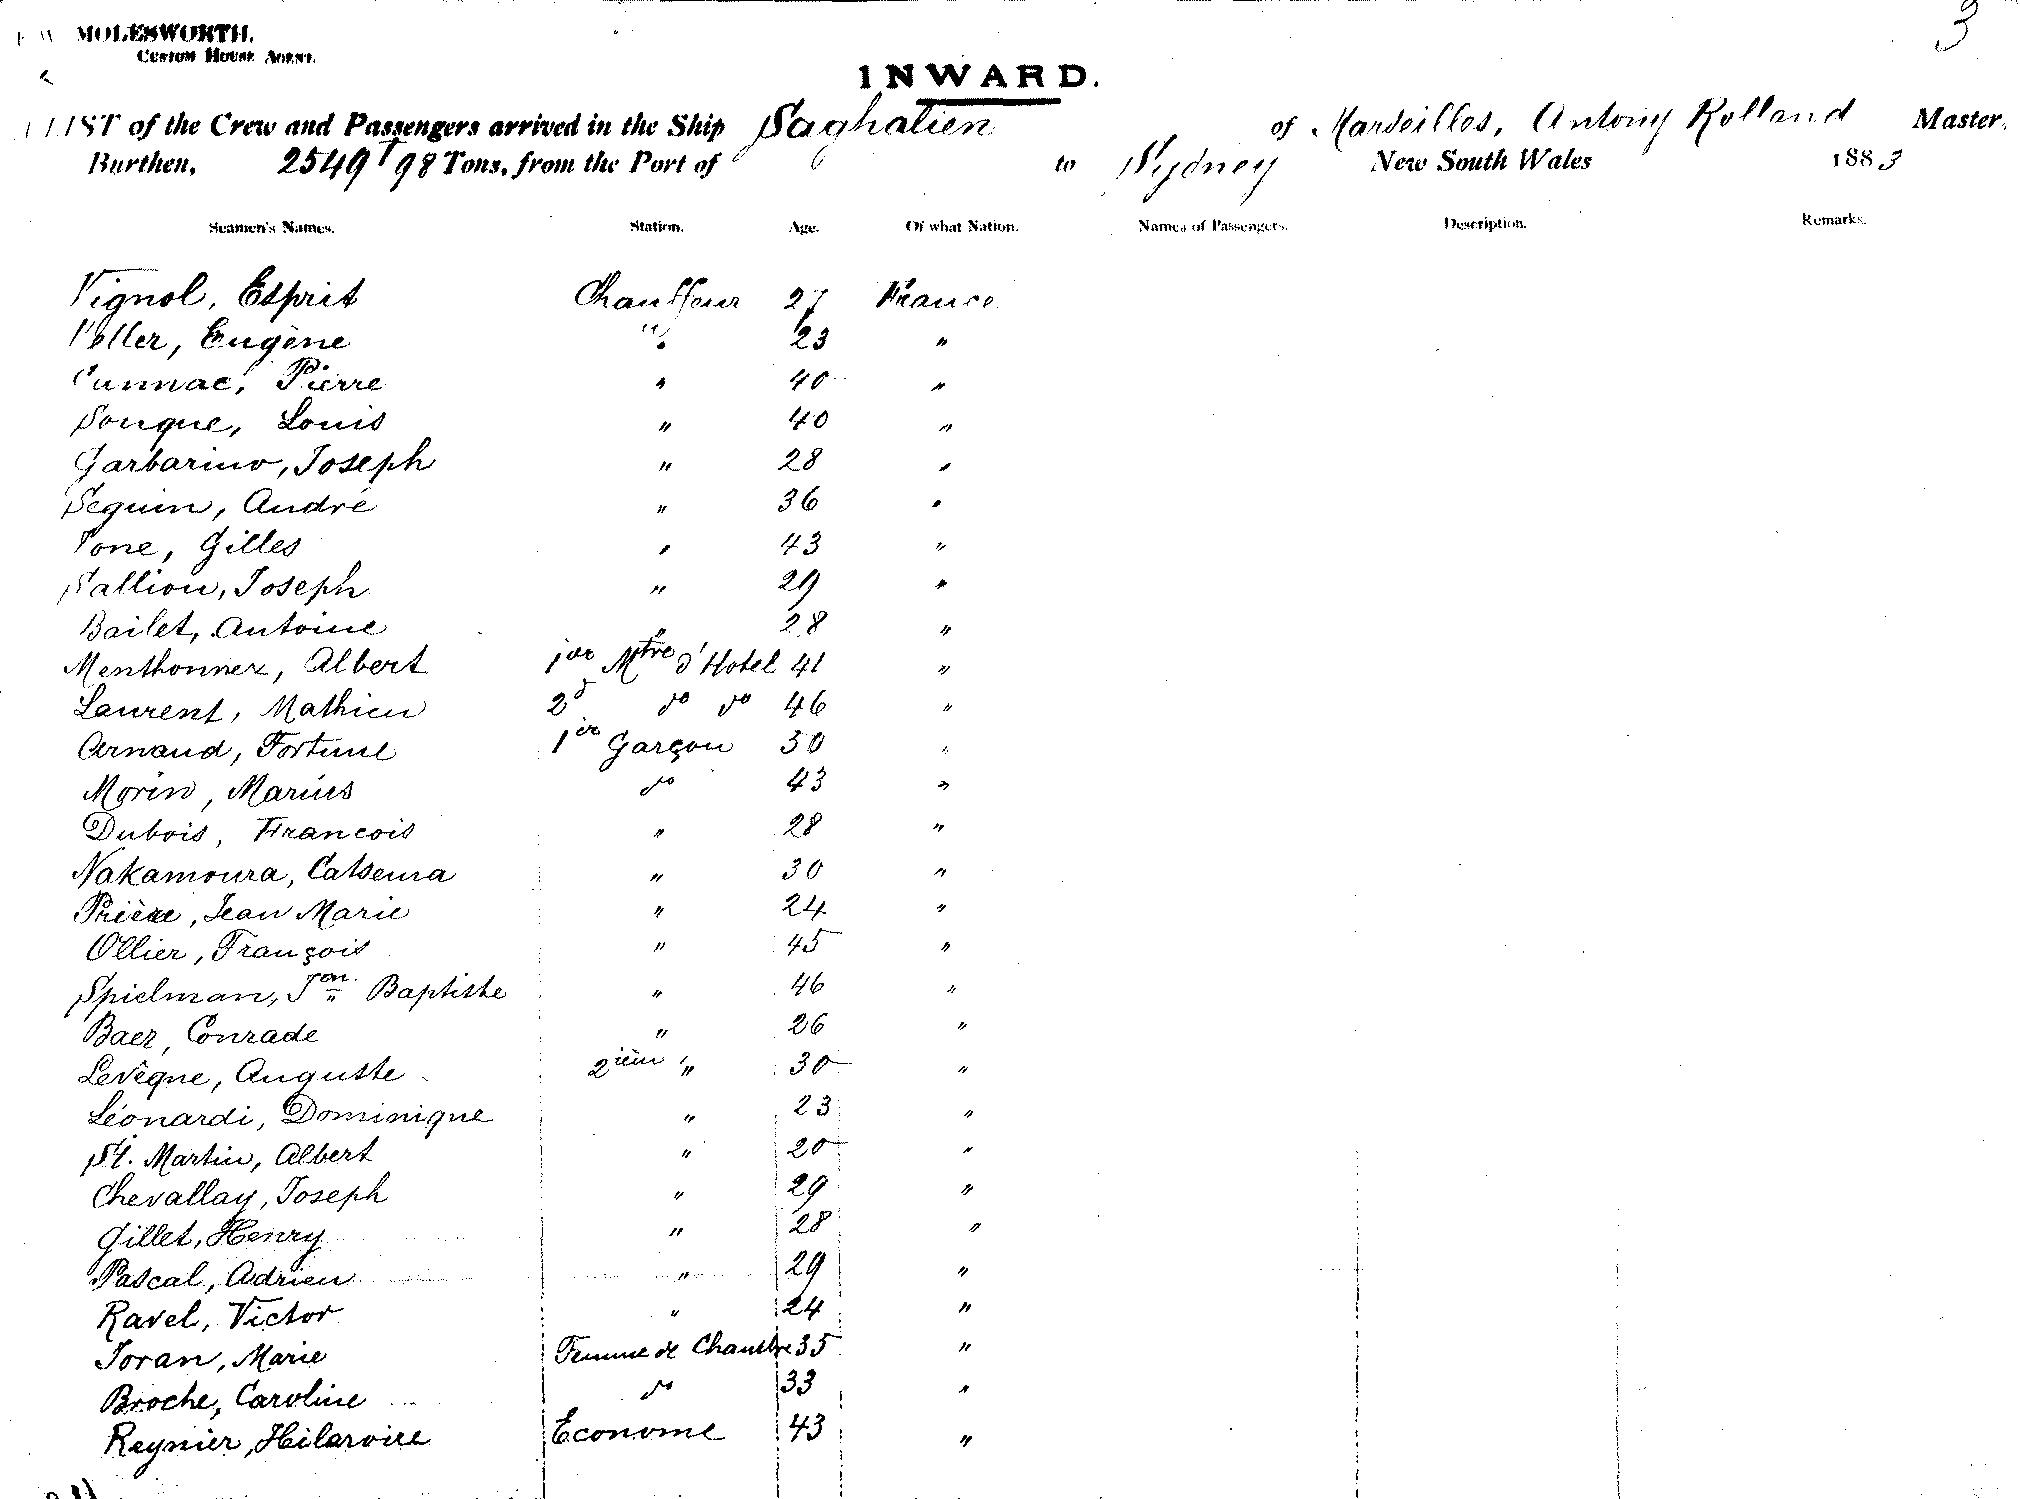 MOLESWORTH.
CUSTOM HOUSE AGENT.
3
INWARD.
LIST of the Crew and Passengers arrived in the Ship Saghalien of Marseilles, Antony Rolland Master,
Burthen, 2549 T 98 Tons, from the Port of to Sydney New South Wales 1883
Seamen's Names. Station. Age. Of what Nation. Names of Passengers. Description. Remarks.
Vignol, Esprit Chauffeur 27 France
Eugène " 23 "
Cunnac, Pierre " 40 "
Souque, Louis " 40 "
Garbarino, Joseph " 28 "
Seguin, André " 36 "
Gilles " 43 "
Sallion, Joseph " 29 "
Bailet, Antoine " 28 "
Menthonnex, Albert 1er Mtre d'Hotel 41 "
Laurent, Mathieu 2d do do 46 "
Arnaud, Fortune 1er Garçon 30 "
Morin, Marius do 43 "
Dubois, Francois " 28 "
Nakamoura, Catseura " 30 "
Jean Marie " 24 "
Ollier, François " 45 "
Spielman, Jean Baptiste " 46 "
Baer, Conrade " 26 "
Levêque, Auguste 2ièm " 30 "
Léonardi, Dominique " 23 "
St. Martin, Albert " 20 "
Chevallay, Joseph " 29 "
Gillet, Henry " 28 "
Pascal, Adrien " 29 "
Ravel, Victor " 24 "
Joran, Marie Femme de Chambre 35 "
Broche, Caroline do 33 "
Reynier, Hilaroire Econome 43 "